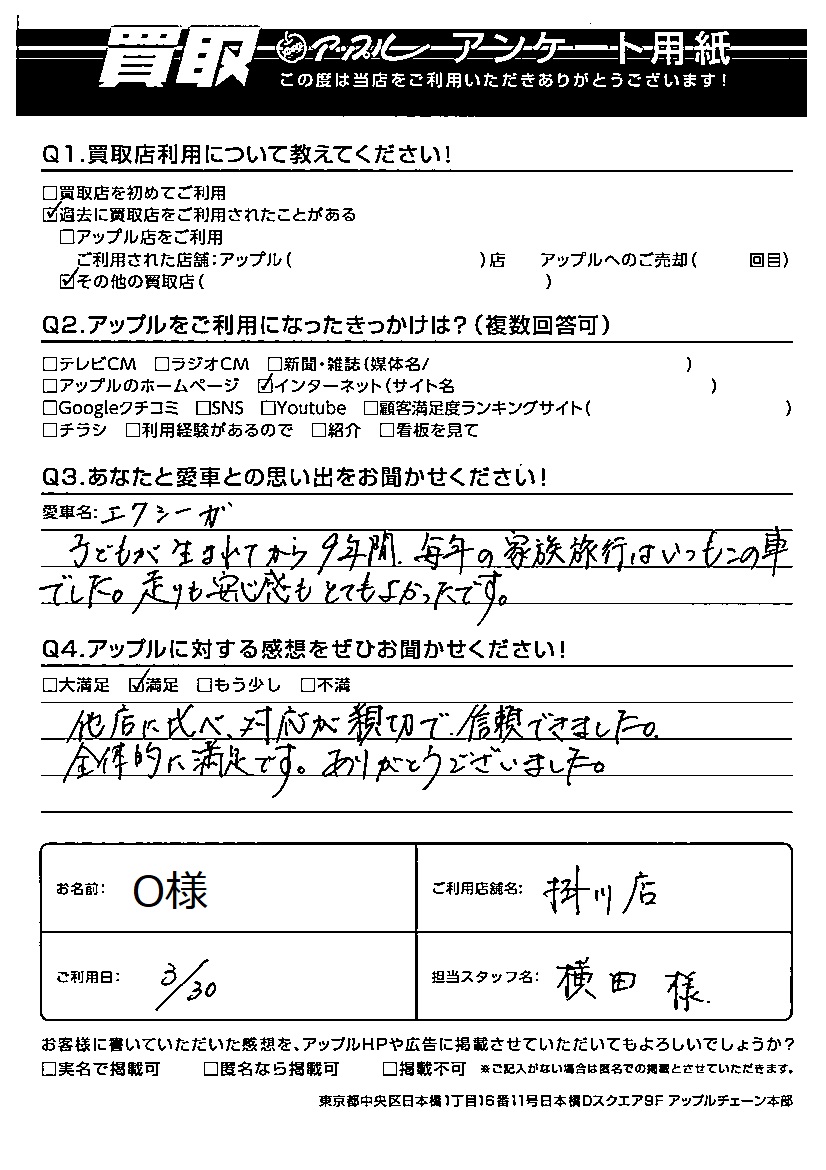 買取 アップル アンケート用紙
この度は当店をご利用いただきありがとうございます!
Q1.買取店利用について教えてください!
□買取店を初めてご利用
☑過去に買取店をご利用されたことがある
□アップル店をご利用
ご利用された店舗:アップル( )店 アップルへのご売却( 回目)
☑その他の買取店( )
Q2.アップルをご利用になったきっかけは?(複数回答可)
□テレビCM □ラジオCM □新聞・雑誌(媒体名/ )
□アップルのホームページ ☑インターネット(サイト名 )
□Googleクチコミ □SNS □Youtube □顧客満足度ランキングサイト( )
□チラシ □利用経験があるので □紹介 □看板を見て
Q3.あなたと愛車との思い出をお聞かせください!
愛車名:エクシーガ
子どもが生まれてから9年間、毎年の家族旅行はいつもこの車
でした。走りも安心感もとてもよかったです。
Q4.アップルに対する感想をぜひお聞かせください!
□大満足 ☑満足 □もう少し □不満
他店に比べ、対応が親切で、信頼できました。
全体的に満足です。ありがとうございました。
お名前: O様 ご利用店舗名: 掛川店
ご利用日: 3/30 担当スタッフ名: 横田 様.
お客様に書いていただいた感想を、アップルHPや広告に掲載させていただいてもよろしいでしょうか?
□実名で掲載可 □匿名なら掲載可 □掲載不可 ※ご記入がない場合は匿名での掲載とさせていただきます。
東京都中央区日本橋1丁目16番11号日本橋Dスクエア9F アップルチェーン本部